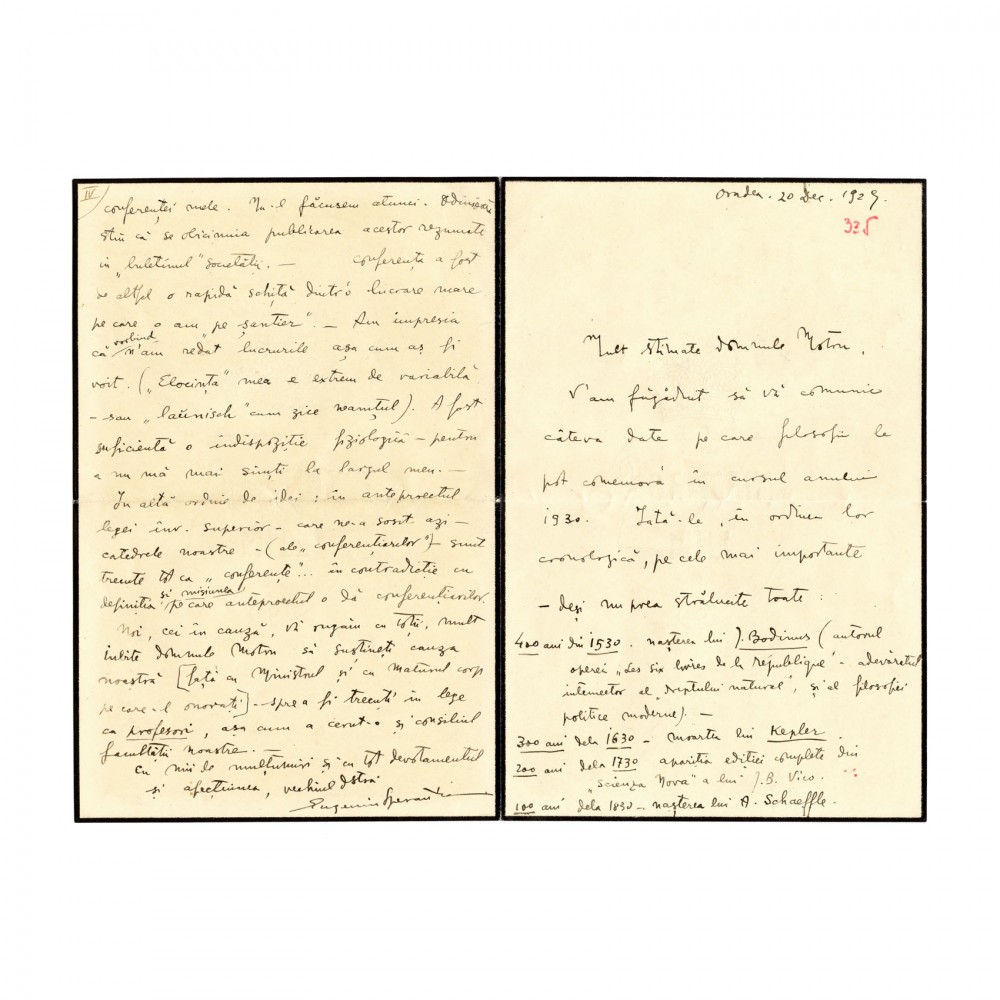 IV
conferenței mele. Nu-l făcusem atunci.
știu că se obicinuia publicarea acestor rezumate
in „buletinul" societății. — conferența a fost
de altfel o rapidă schiță dintr'o lucrare mare
pe care o am „pe șantier". — Am impresia
că vorbind n'am redat lucrurile așa cum aș fi
voit. („Elocința" mea e extrem de variabilă
– sau „laünisch" cum zice neamțul). A fost
suficientă o indispoziție fiziologică – pentru
a nu mă mai simți la largul meu. —
In altă ordine de idei: in anteproectul
legei înv. superior – care ne-a sosit azi –
catedrele noastre – (ale „conferențiarilor") – sunt
trecute tot ca „conferențe"... in contradicție cu
definiția și misiunea pe care anteproectul o dă conferențiarilor.
Noi, cei în cauză, vă rugăm cu toții, mult
iubite domnule Motru să susțineți cauza
noastră [față cu Ministrul și cu Maturul corp
pe care-l onorați] – spre a fi trecuți in lege
ca profesori, așa cum a cerut-o și consiliul
facultății noastre. —
Cu mii de mulțumiri și cu tot devotamentul
și afecțiunea, vechiul Dstră
Eugeniu Sperantia
Oradea. 20 Dec. 1929.
335
Mult stimate domnule Motru,
V'am făgăduit să vă comunic
câteva date pe care filosofii le
pot comemora în cursul anului
1930. Iată-le, in ordinea lor
cronologică, pe cele mai importante
– deși nu prea strălucite toate:
400 ani din 1530. nașterea lui J. Bodinus (autorul
operei „Les six livres de la république" – adevăratul
intemeetor al „dreptului natural", și al filosofiei
politice moderne). —
300 ani dela 1630 – moartea lui Kepler.
200 ani dela 1730 apariția ediției complete din
„Scienza Nova" a lui J. B. Vico.
100 ani dela 1830 – nașterea lui A. Schaeffle.